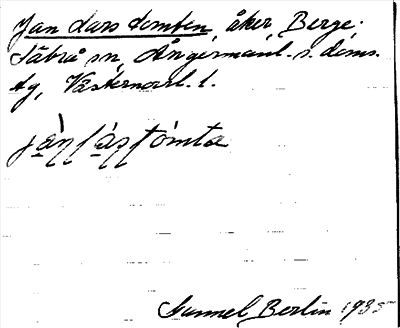 Jan Lars tomten, åker, Berge.
Säbrå sn, Ångermanl. s. doms.
tg, Västernorrl. l.
jàn lás tómta
Gunnel Berlin 1935